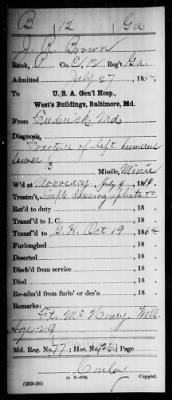 B 12 Ga
J. R. Brown
Rank, P Co. E, 12 Reg't Ga
Admitted July 27 186
To U. S. A. Gen'l Hosp.,
West's Buildings, Baltimore, Md.
From Frederick Md.
Diagnosis,
Fracture of left humerus
lower ⅓
Missile, Minie
W'd at Monocacy July 9 1864.
Treatm't, Simple dressing
Ret'd to duty 18 .
Transf'd to I. C. 18 .
Transf'd to G. H. Oct 19 1864
Furloughed 18 .
Deserted 18 .
Disch'd from service 18 .
Died 18 .
Re-adm'd from furlo' or des'n 18 .
Remarks:
Ft. McHenry Md.
Age 29
Md. Reg. No. 77; Hos. No.
Conley
Copyist.